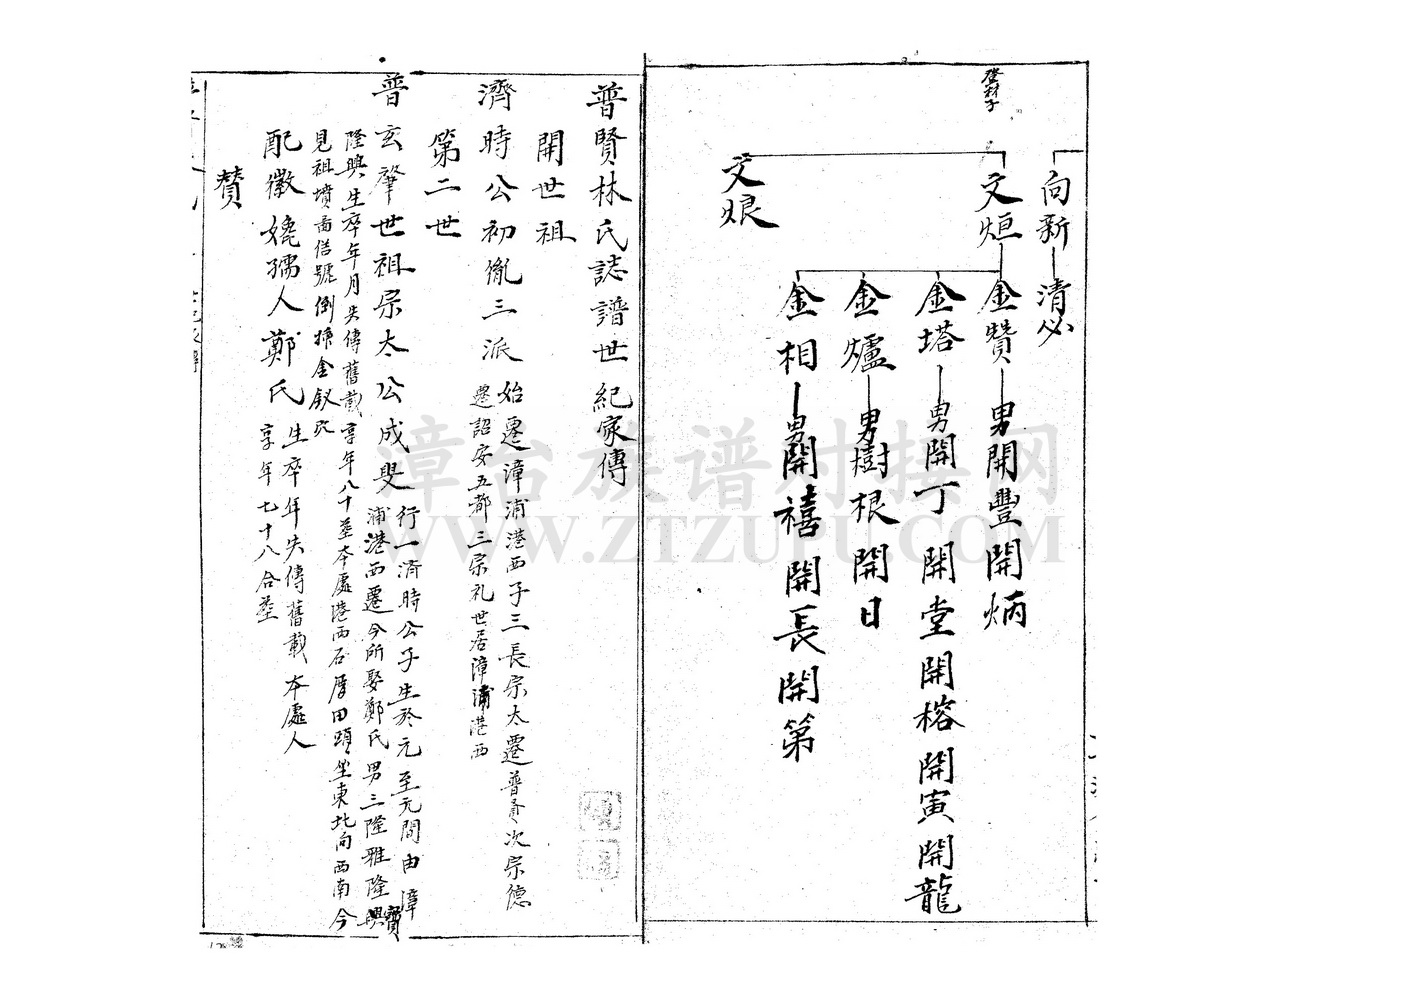 向新 清必
登材子
文烜
金贊 男開豐開炳
金塔 男開丁開堂開榕開寅開龍
金爐 男樹根開日
金相 男開禧開長開第
文烺
普賢林氏誌譜世紀家傳
開世祖
濟時公初胤三派
始遷漳浦港西子三長宗太遷普賢次宗德
遷詔安五都三宗礼世居漳浦港西
第二世
普玄肇世祖宗太公成叟
行一濟時公子生於元至元間由漳
浦港西遷今所娶鄭氏男三隆雅隆寶
隆興生卒年月失傳舊載享年八十葬本處港西石厝田頭坐東北向西南今
見祖墳面佸號倒掛金釵穴
配徽婉孺人鄭氏
生卒年失傳舊載本處人
享年七十八合葬
贊
漳台族谱对接网
WWW.ZTZUPU.COM